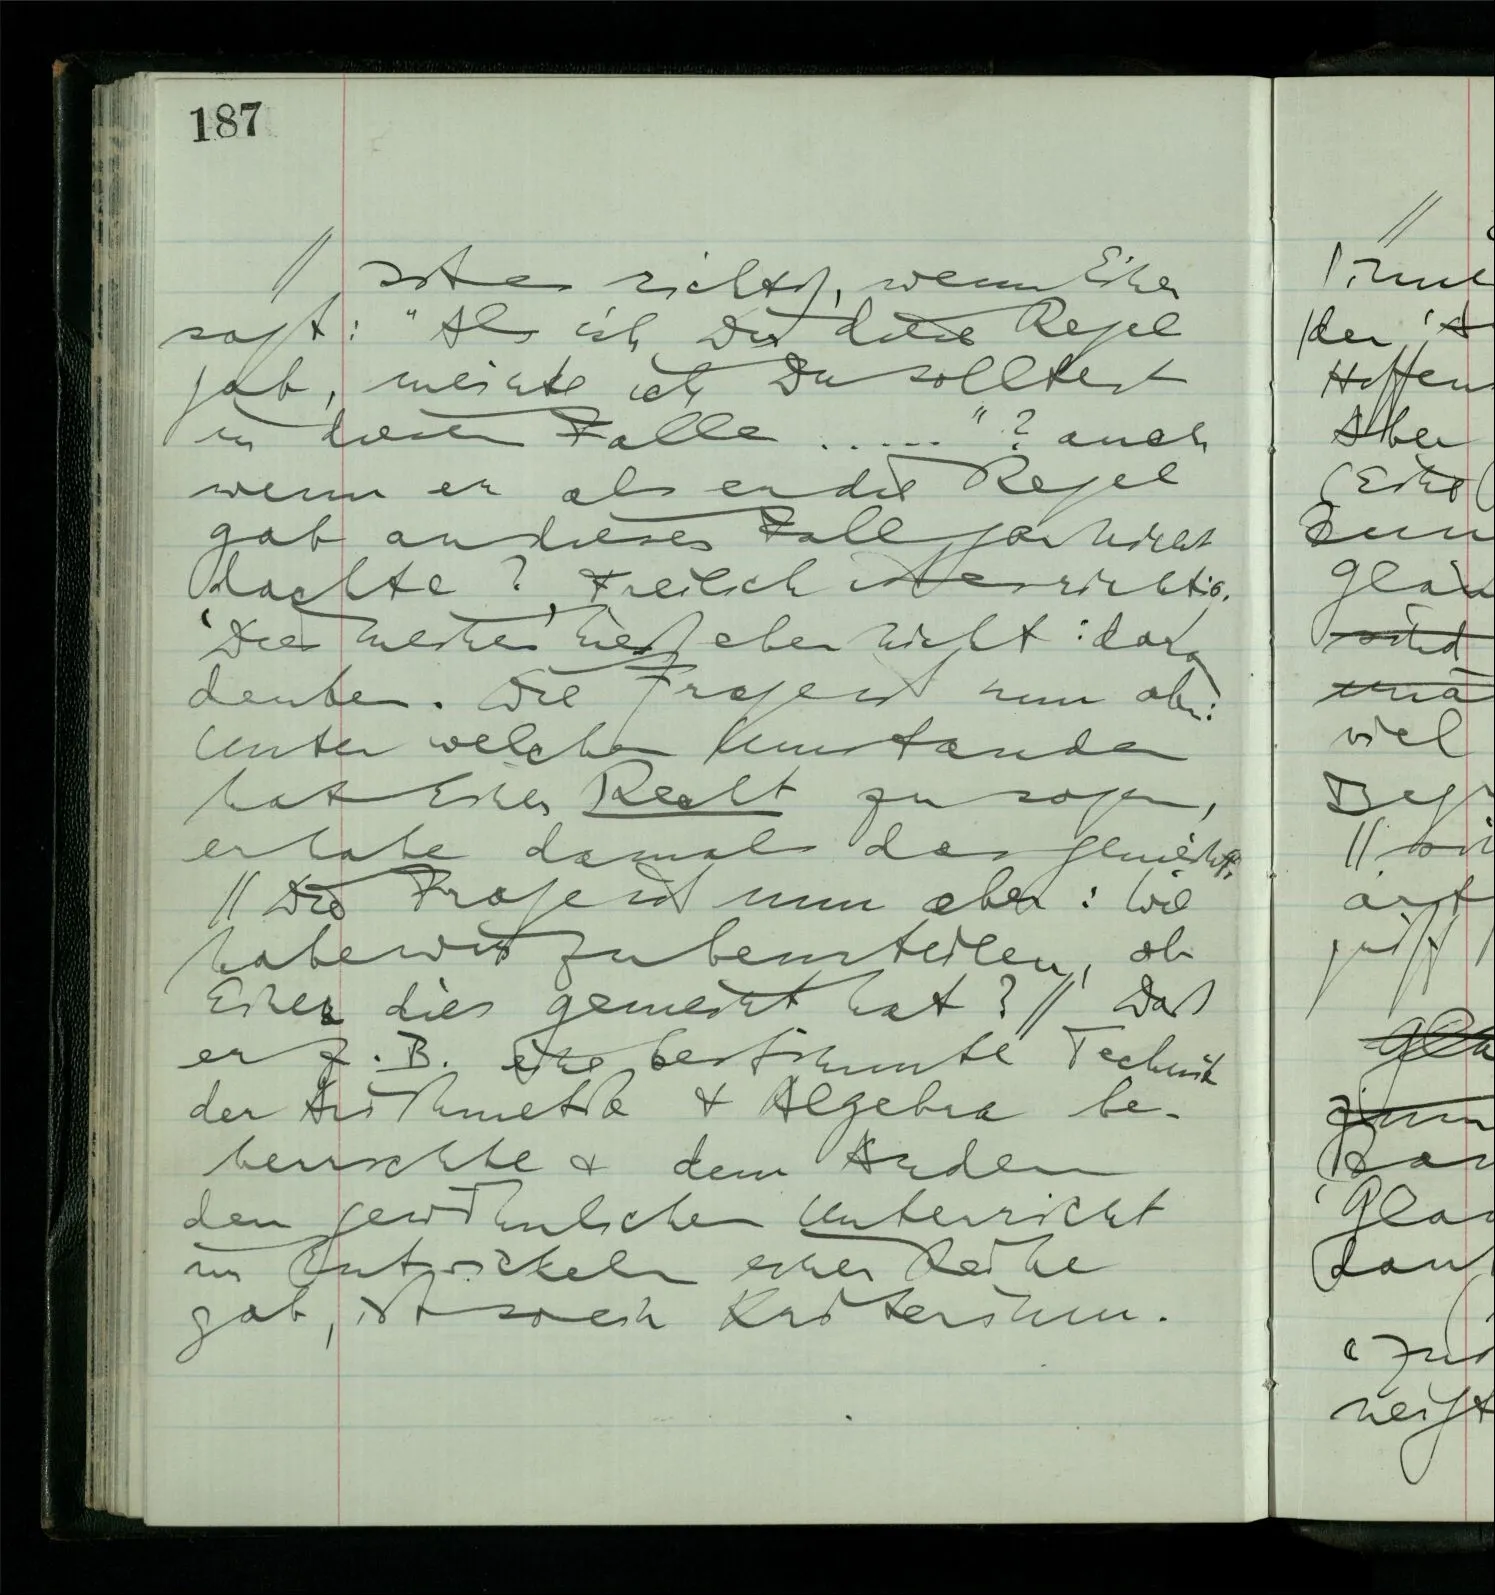 187
// Ist es richtig, wenn Einer
sagt: "Als ich Dir diese Regel
gab, meinte ich Du solltest
in diesem Falle ......"? auch
wenn er als er die Regel
gab an diesen Fall gar nicht
dachte? Freilich ist es richtig.
'Das meinen' hieß eben nicht: daran
denken. Die Frage ist nun aber:
Unter welchen Umständen
hat Einer Recht zu sagen,
er habe damals das gemeint?
// Die Frage ist nun aber: Wie
haben wir zu beurteilen, ob
Einer dies gemeint hat? // Daß
er z.B. eine bestimmte Technik
der Arithmetik & Algebra be-
herrschte & dem Andern
den gewöhnlichen Unterricht
im Entwickeln einer Reihe
gab, ist so ein Kriterium.
//
Hoffen
Aber
viel